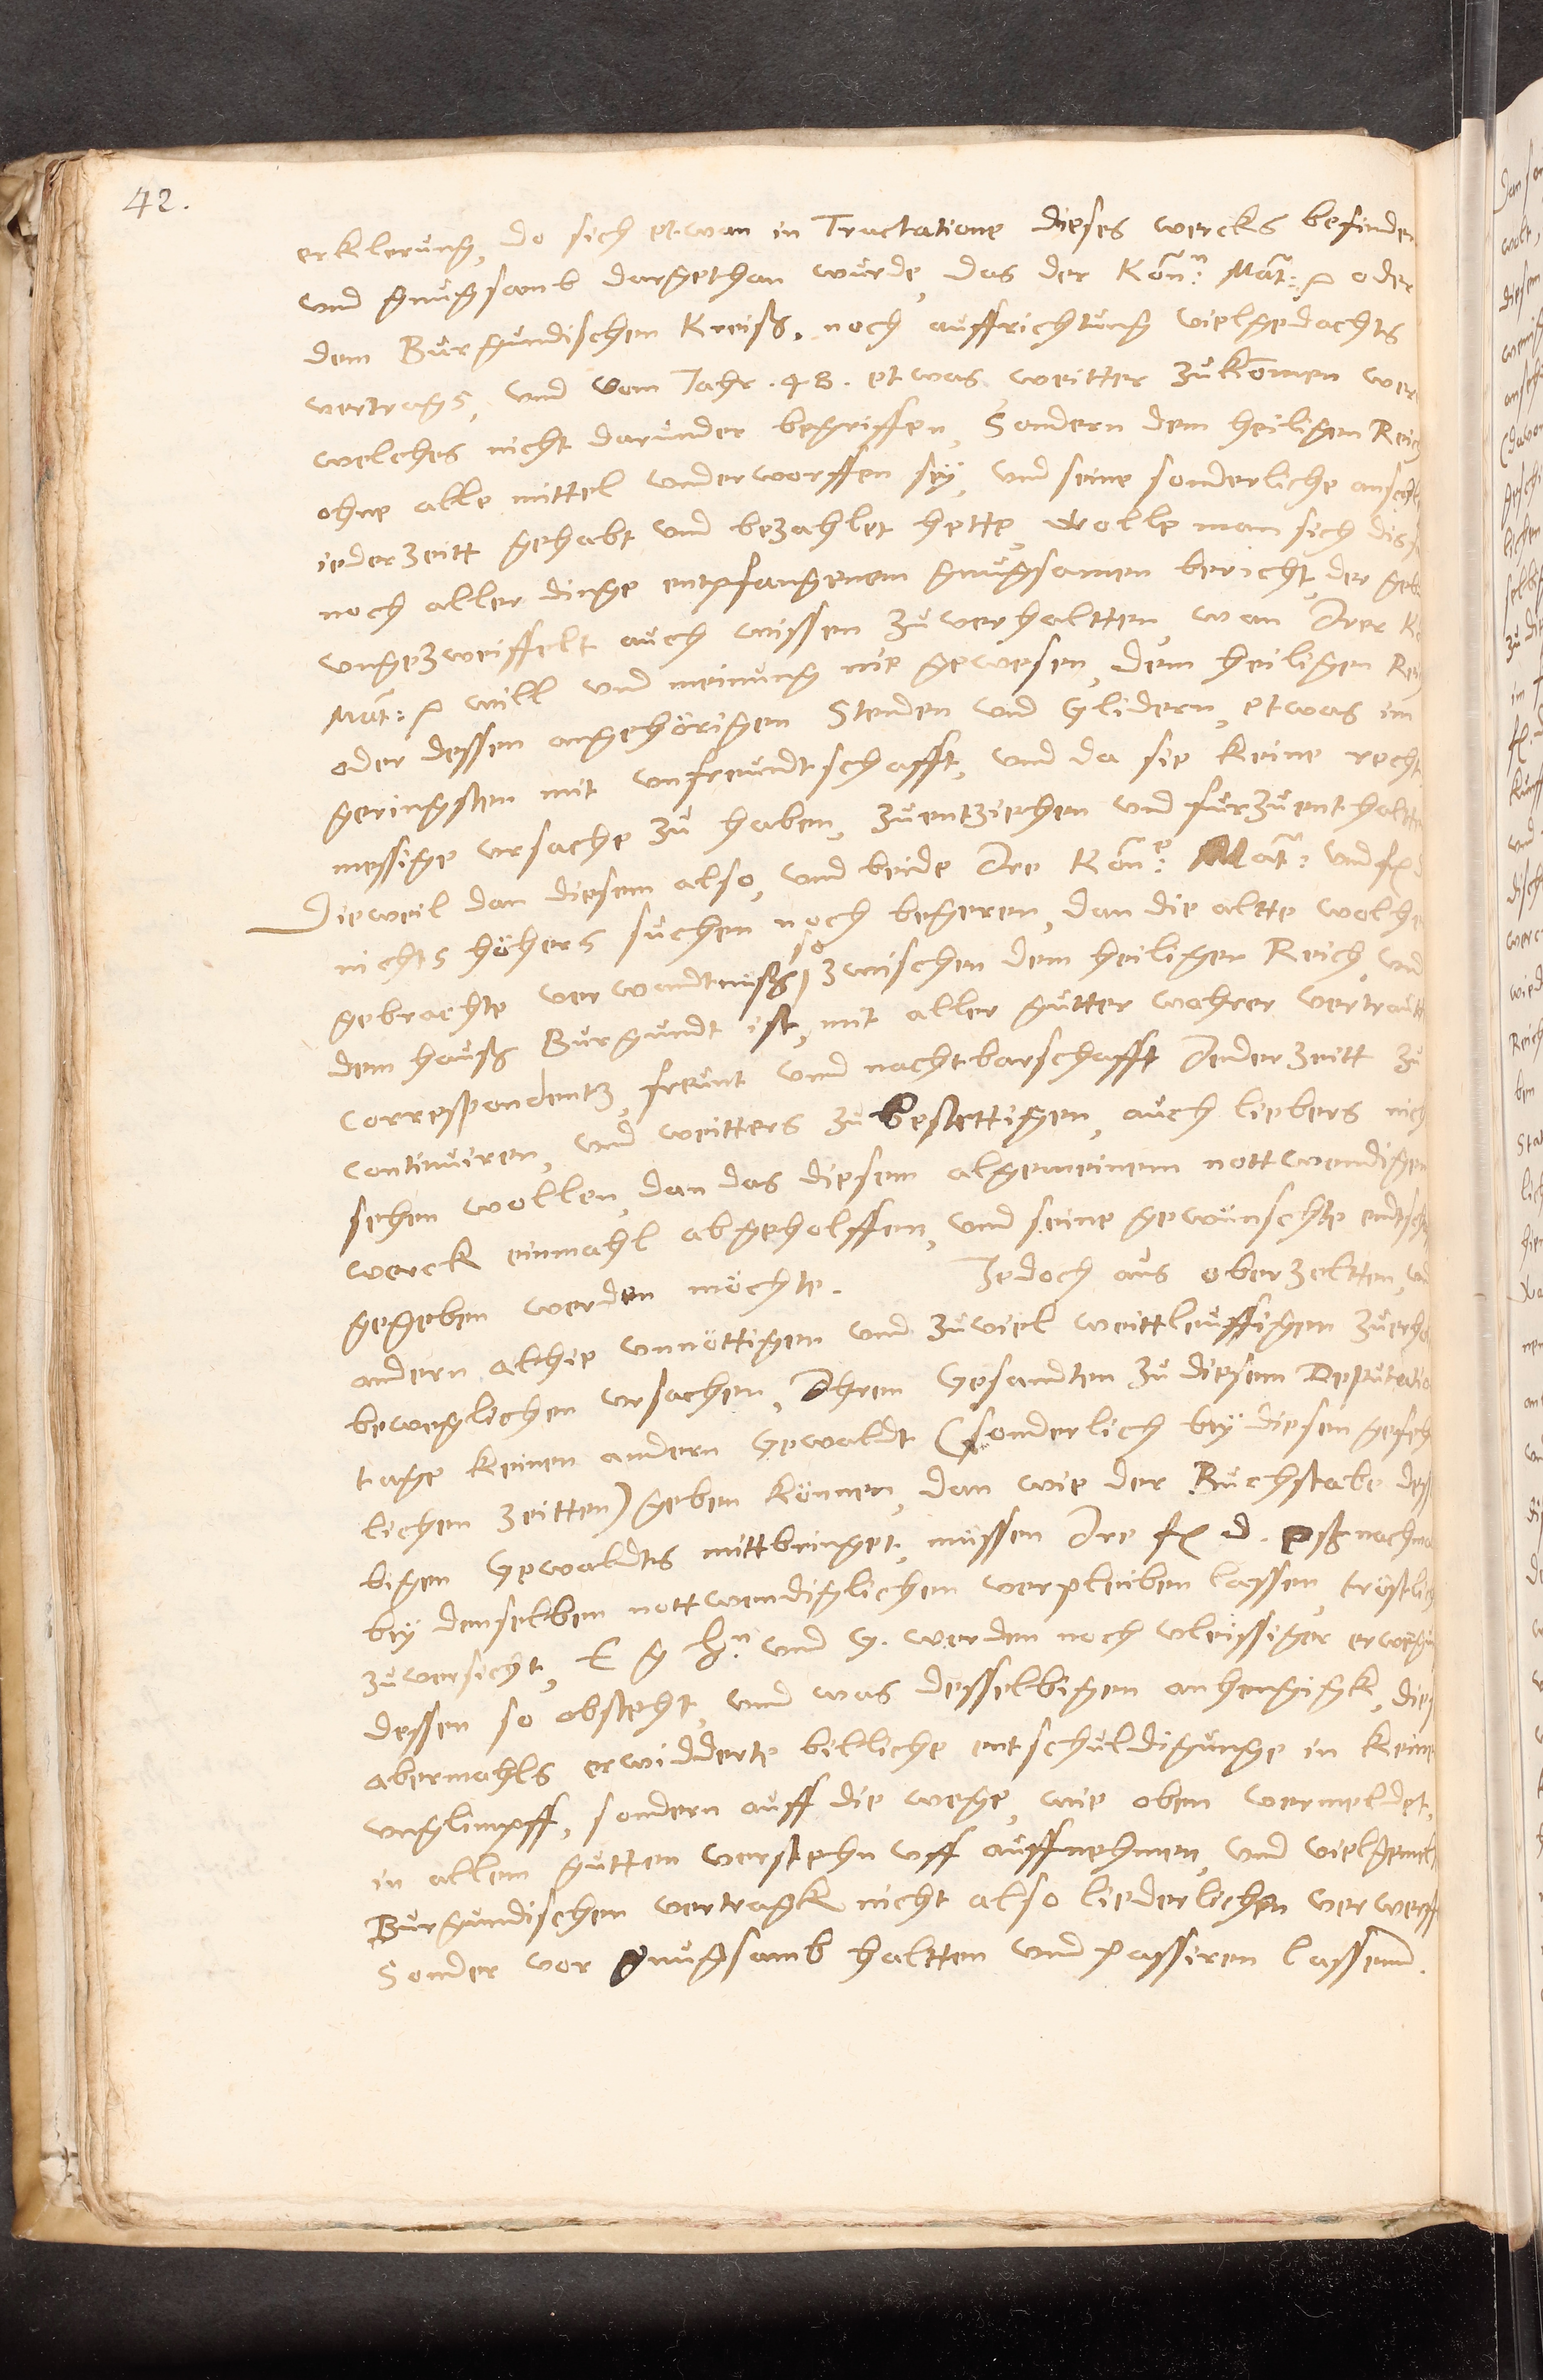 42.
erklerung, do sich etwan in Tractatione dieses wercks befinden
und gnugsamb dargethan wurde, das der Kön:n Mat: oder
dem Burgundischen Kreiß, noch auffrichtung vielgedachts
vertrags, und vom Jahr .48. etwas weitter zukomen wer
welches nicht darunder begriffen, Sondern dem heiligen Reich
ohne alle mittel underworffen sey, und seine sonderliche anschl
ieder zeitt gehabt und bezahlet hette, wolle man sich
noch aller dinge entpfangenem gnugsamen bericht, der geb
ungezweiffelt auch wissen zuverhaltten, wan Irer K
Mat: will und meinung nie gewesen, dem heiligen Rei
oder dessen angehörigen Stenden und Glidern, etwas im
geringsten mit unfreundtschafft, und da sie keine recht
messige ursache zu haben, zuentziehen und furzuenthaltten
Dieweil dan diesem also, und beide Ire Kön:e Mat: und f d
nichts höhers suchen noch begeren, dan die altte wolhe
gebrachte verwandtnuß so zwischen dem heiligen Reich, und
dem hauß Burgundt ist, mit aller gutter wahrer vertraut
Correspondentz, freunt und nachtbarschafft Jeder zeitt zu
Continuiren, und weitters zu bestettigen, auch liebers nich
sehen wollen, dan das diesem algemeinem nottwendigen
werck einmahl abgeholffen, und seine gewünschte endtsch
gegeben werden möchte. Jedoch aus oberzeltten, und
andern althie unnöttigen und zuviel weittleuffigen zuerho
beweglichen ursachen, Ihren Gesandten zu diesem Deputatio
tage keinen andern Gewaldt (sonderlich bey diesen gefehr
lichen zeitten) geben können, dan wie der Buchstabe dess
bigen Gewaldts mittbringet, müssen Ire f d. eß nachma
bey demselben nottwendiglichen verpleiben lassen, tröstlich
zuversicht, E g h:n und G. werden noch vleissiger erwegu
dessen so obsteht, und was desselbigen anhengigk, dies
abermahls erwidderte billiche entschuldigunge in keine
unglimpff, sondern auff die wege, wie oben vermeldet,
in allem gutten verstehn uff auffnehmen, und vielgemelt
Burgundischen vertragk nicht also liederlichen verwerff
Sonder vor gnugsamb haltten und passiren lassenn.